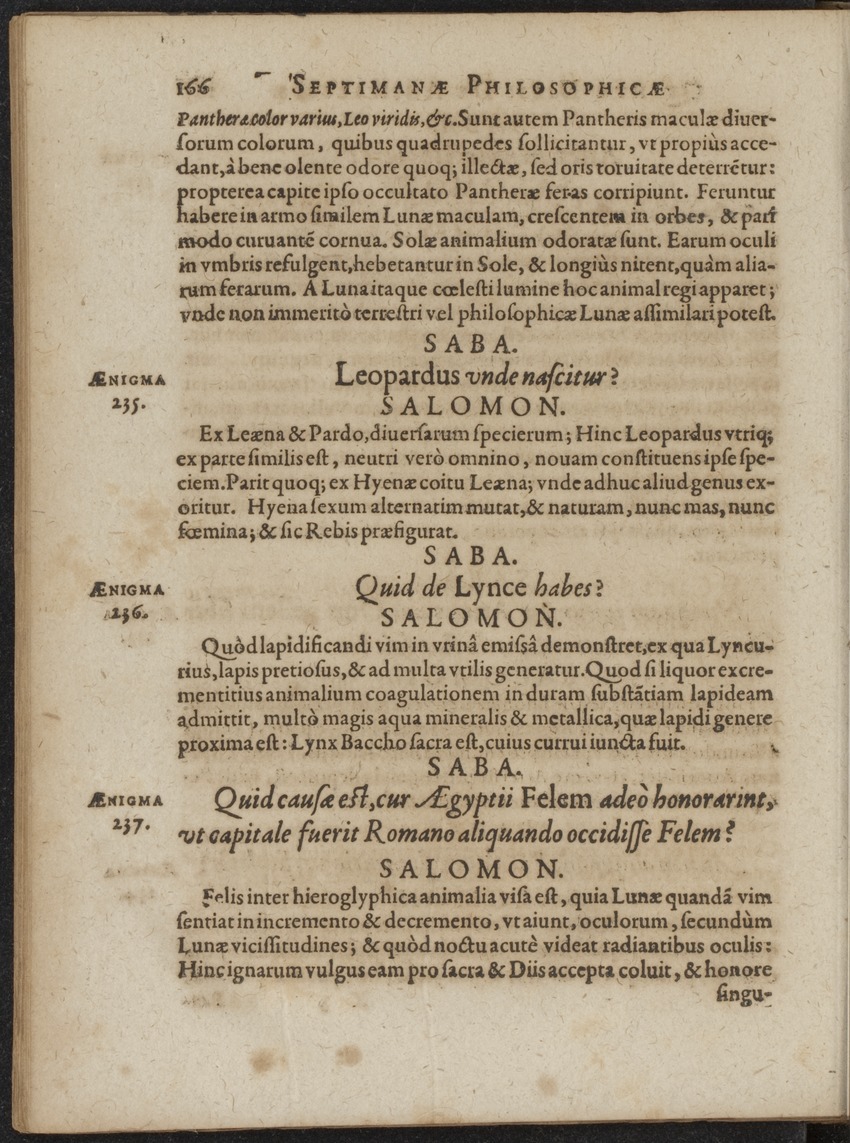 166 SEPTIMANÆ PHILOSOPHICÆ
Pantheræ color varius, Leo viridis, &c. Sunt autem Pantheris maculæ diuer-
ſorum colorum, quibus quadrupedes ſollicitantur, vt propiùs acce-
dant, à bene olente odore quoq; illectæ, ſed oris toruitate deterrẽtur:
propterea capite ipſo occultato Pantheræ feras corripiunt. Feruntur
habere in armo ſimilem Lunæ maculam, creſcentem in orbes, & pari
modo curuantẽ cornua. Solæ animalium odoratæ ſunt. Earum oculi
in vmbris refulgent, hebetantur in Sole, & longiùs nitent, quàm alia-
rum ferarum. A Luna itaque cœleſti lumine hoc animal regi apparet;
vnde non immeritò terreſtri vel philoſophicæ Lunæ aſſimilari poteſt.
SABA.
ÆNIGMA
235.
Leopardus vnde naſcitur?
SALOMON.
Ex Leæna & Pardo, diuerſarum ſpecierum; Hinc Leopardus vtriq;
ex parte ſimilis eſt, neutri verò omnino, nouam conſtituens ipſe ſpe-
ciem. Parit quoq; ex Hyenæ coitu Leæna; vnde adhuc aliud genus ex-
oritur. Hyena ſexum alternatim mutat, & naturam, nunc mas, nunc
fœmina; & ſic Rebis præfigurat.
SABA.
ÆNIGMA
236.
Quid de Lynce habes?
SALOMON.
Quòd lapidificandi vim in vrinâ emiſsâ demonſtret, ex qua Lyncu-
rius, lapis pretioſus, & ad multa vtilis generatur. Quod ſi liquor excre-
mentitius animalium coagulationem in duram ſubſtãtiam lapideam
admittit, multò magis aqua mineralis & metallica, quæ lapidi genere
proxima eſt: Lynx Baccho ſacra eſt, cuius currui iuncta fuit.
SABA.
ÆNIGMA
237.
Quid cauſæ eſt, cur Ægyptii Felem adeò honorarint,
vt capitale fuerit Romano aliquando occidiſſe Felem?
SALOMON.
Felis inter hieroglyphica animalia viſa eſt, quia Lunæ quandã vim
ſentiat in incremento & decremento, vt aiunt, oculorum, ſecundùm
Lunæ viciſſitudines; & quòd noctu acutè videat radiantibus oculis:
Hinc ignarum vulgus eam pro ſacra & Diis accepta coluit, & honore
ſingu-